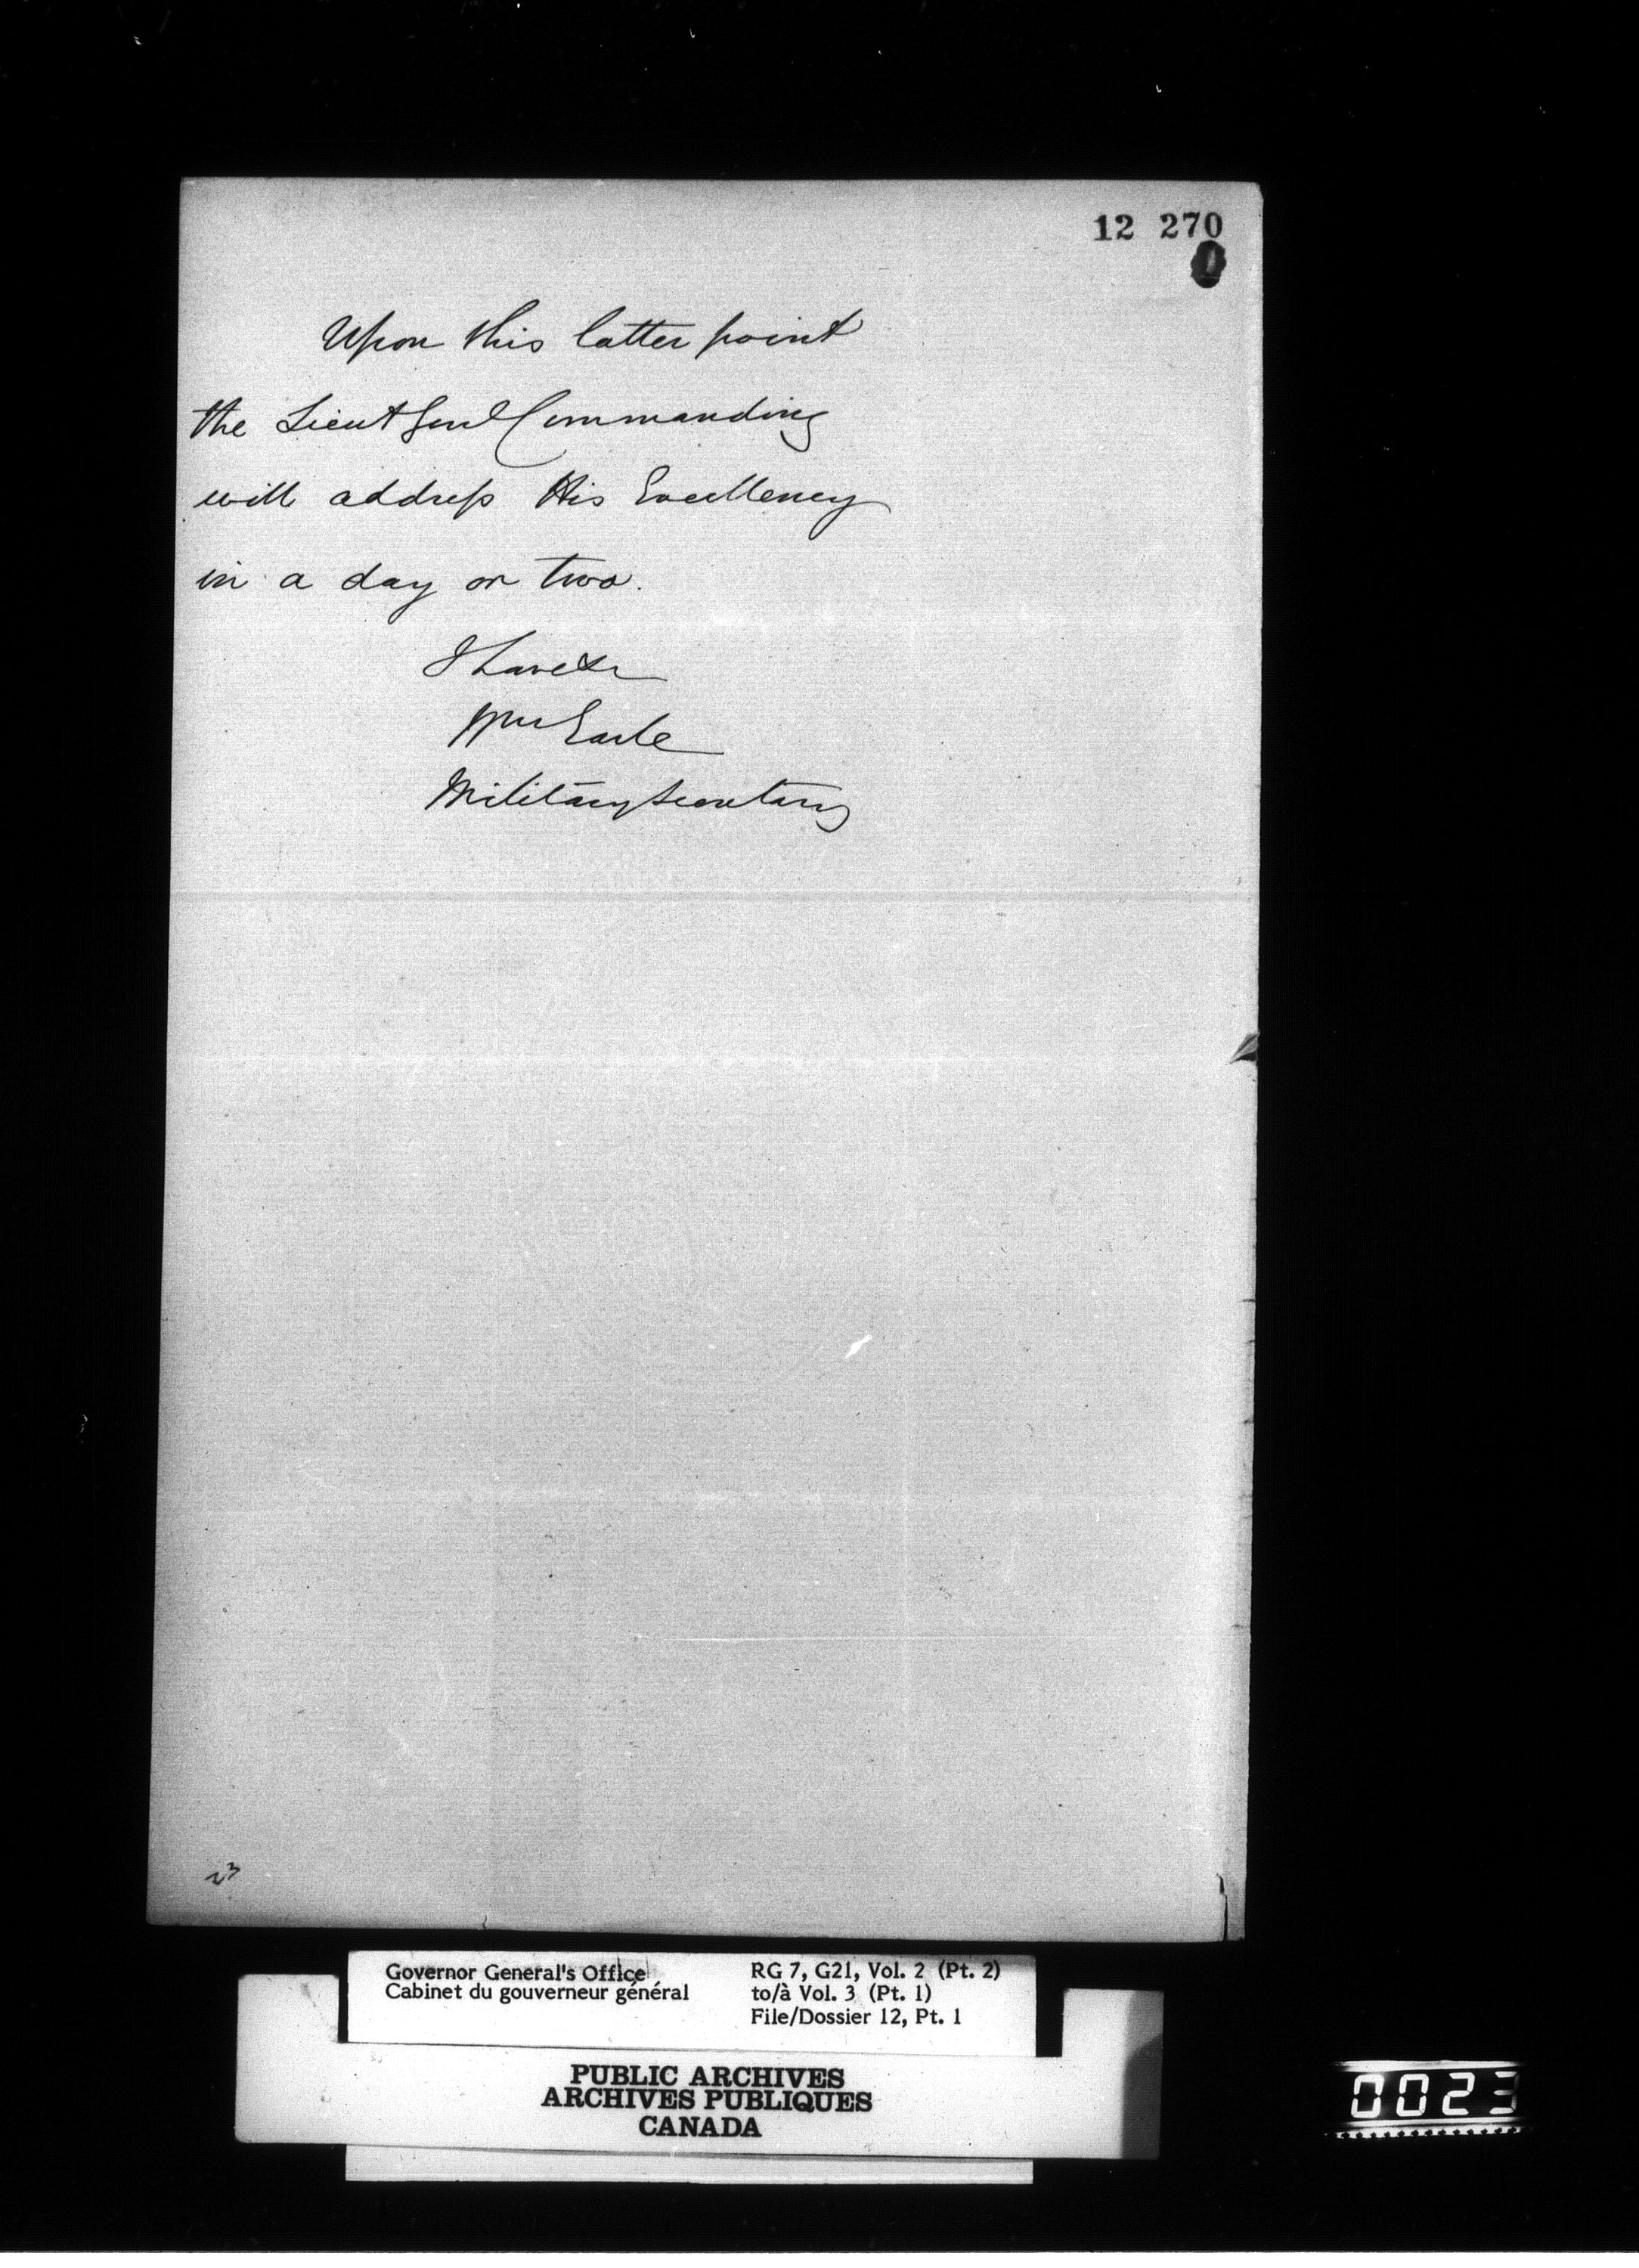 12 270
Upon this latter point
the Lieut Genl Commanding
will address His Excellency
in a day or two.
I have &c
Wm Earle
Military Secretary
23
Governor General's Office
Cabinet du gouverneur général
RG 7, G21, Vol. 2 (Pt. 2)
to/à Vol. 3 (Pt. 1)
File/Dossier 12, Pt. 1
PUBLIC ARCHIVES
ARCHIVES PUBLIQUES
CANADA
0023